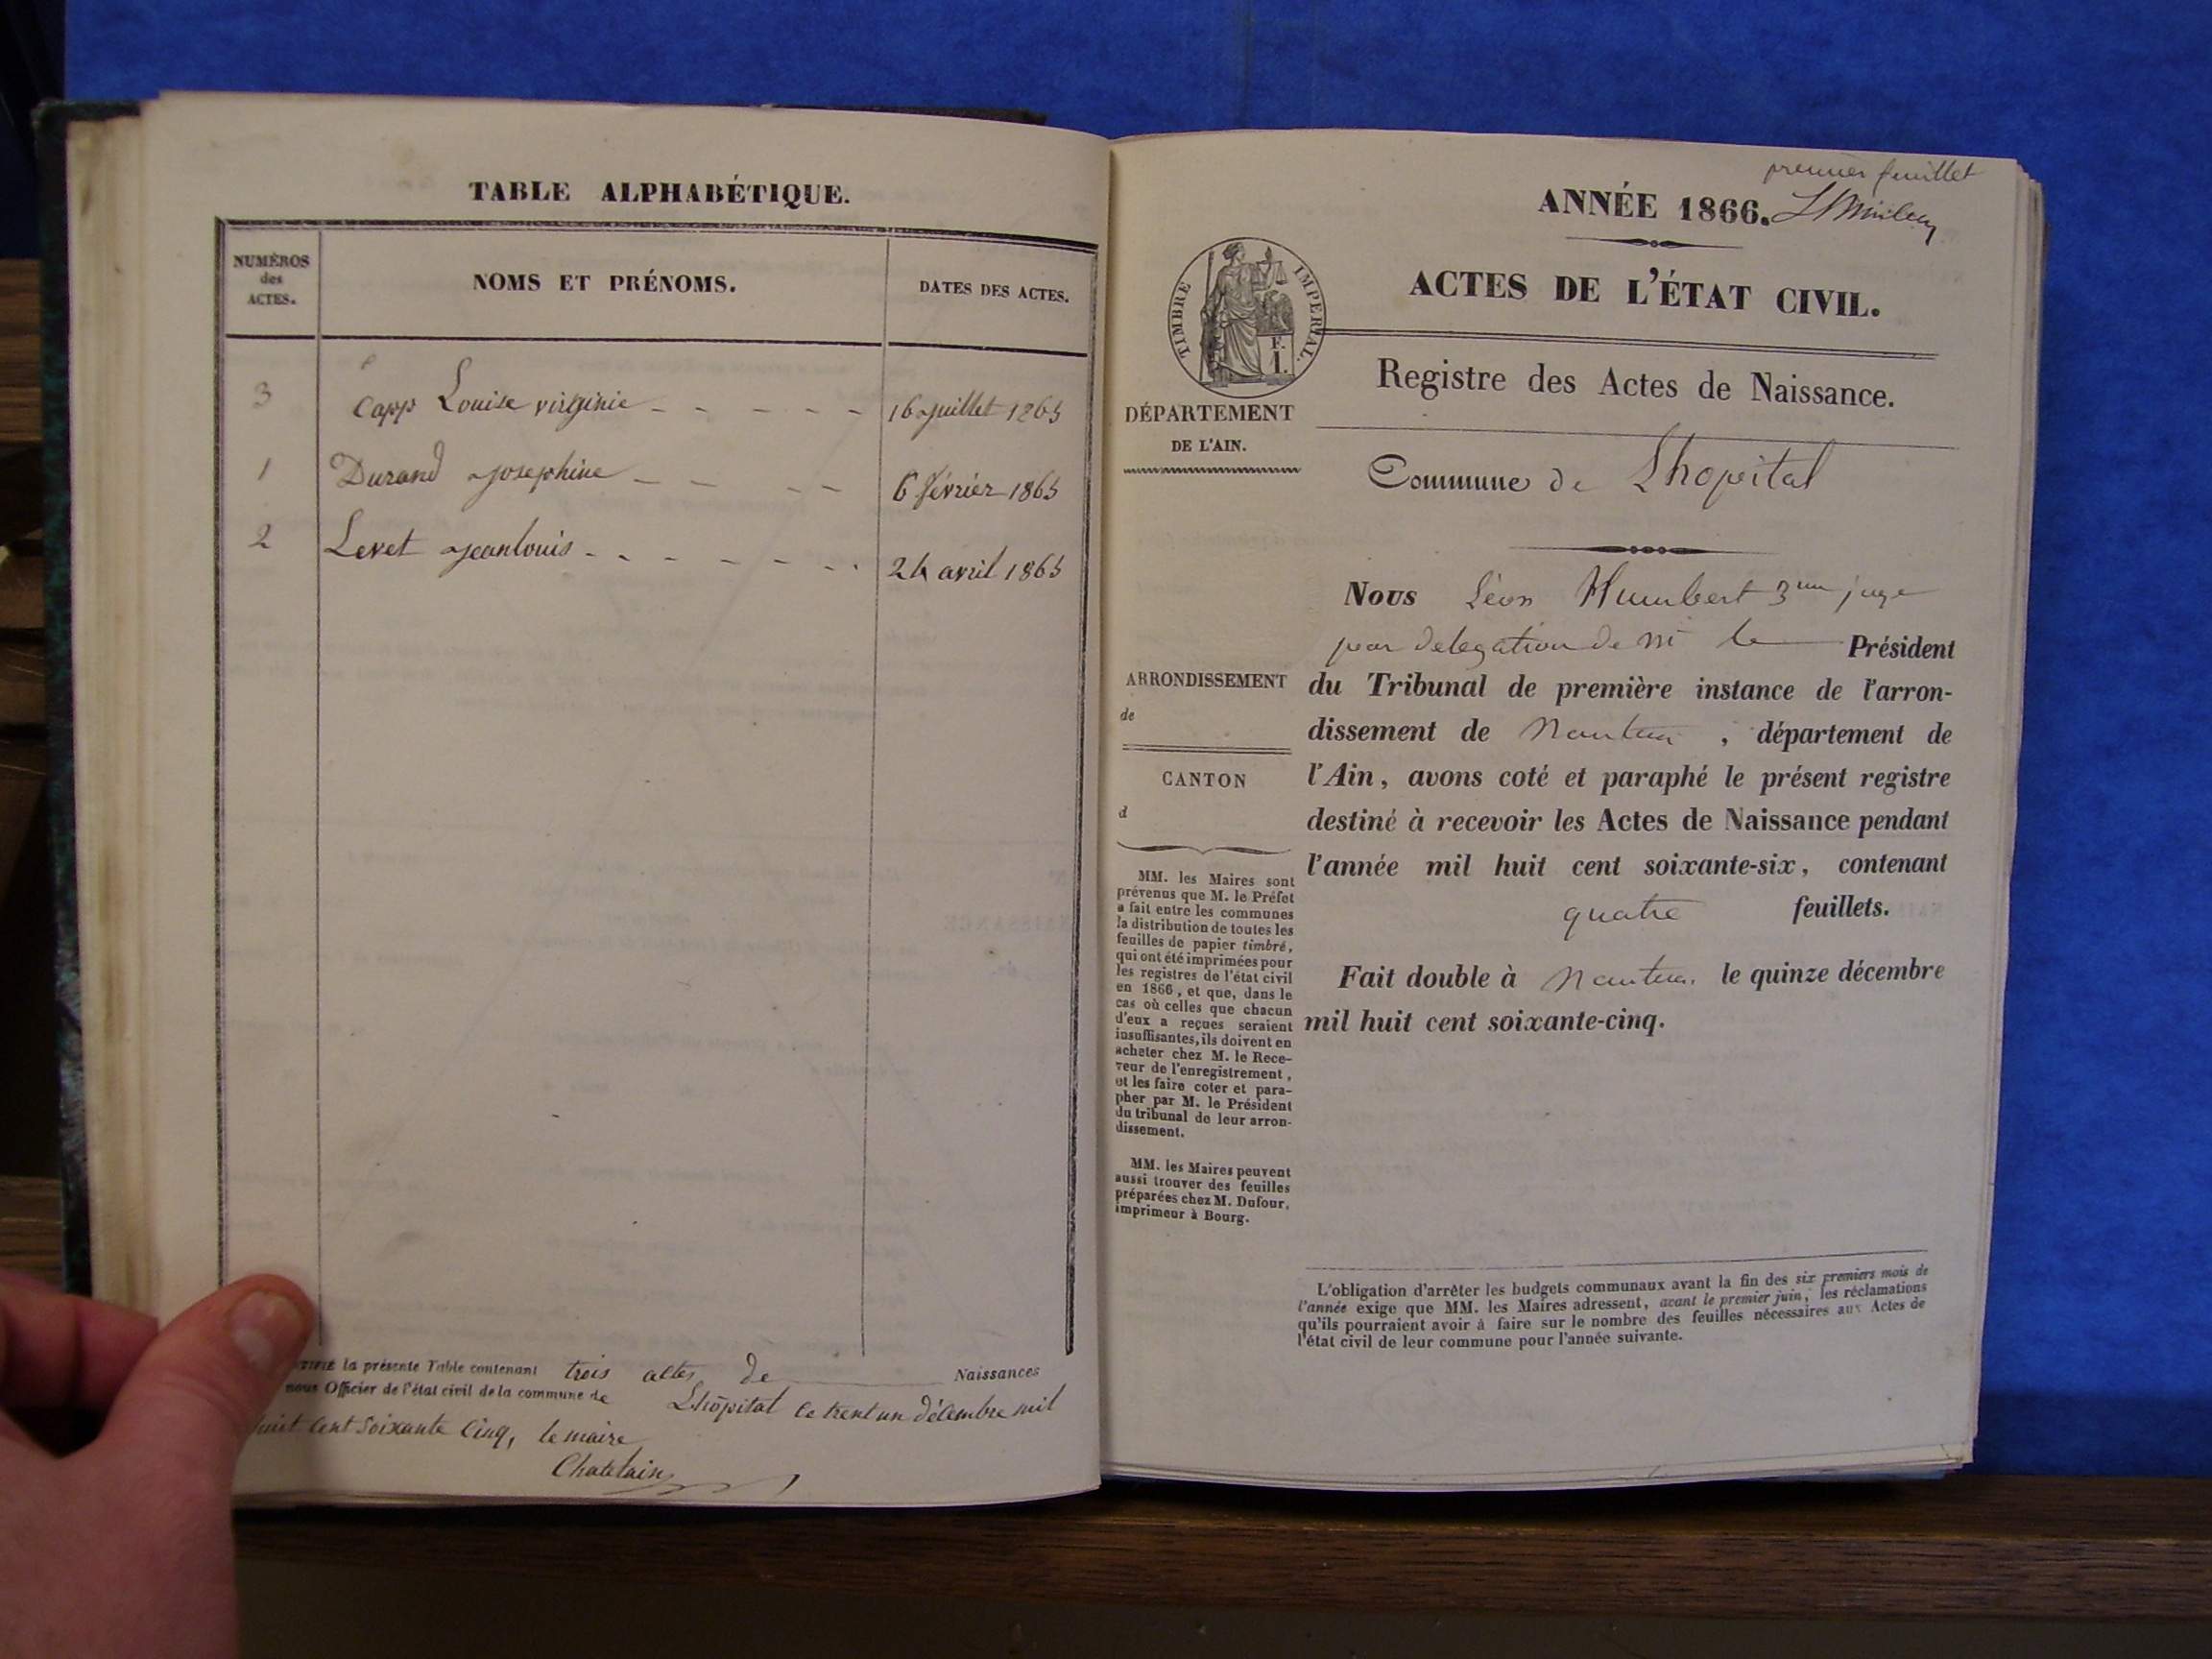 TABLE ALPHABÉTIQUE.
NUMÉROS
des
ACTES.
NOMS ET PRÉNOMS.
DATES DES ACTES.
3 Capp Louise virginie - - - - - 16 juillet 1865
1 Durand Josephine - - - - 6 février 1865
2 Levet Jeanlouis - - - - - - . 24 avril 1865
la présente Table contenant trois actes de Naissances
nous Officier de l'état civil de la commune de Lhôpital le trent un décembre mil
huit cent soixante cinq, le maire
Chatelain
premier feuillet
ANNÉE 1866.
ACTES DE L'ÉTAT CIVIL.
TIMBRE IMPERIAL.
F.
1.
Registre des Actes de Naissance.
DÉPARTEMENT
DE L'AIN.
Commune de Lhopital
Nous Léon Humbert 3me juge
par delegation de Mr le Président
ARRONDISSEMENT
de
CANTON
d
du Tribunal de première instance de l'arron-
dissement de Nantua, département de
l'Ain, avons coté et paraphé le présent registre
destiné à recevoir les Actes de Naissance pendant
l'année mil huit cent soixante-six, contenant
quatre feuillets.
Fait double à Nantua. le quinze décembre
mil huit cent soixante-cinq.
MM. les Maires sont
prévenus que M. le Préfet
a fait entre les communes
la distribution de toutes les
feuilles de papier timbré,
qui ont été imprimées pour
les registres de l'état civil
en 1866, et que, dans le
cas où celles que chacun
d'eux a reçues seraient
insuffisantes, ils doivent en
acheter chez M. le Rece-
veur de l'enregistrement,
et les faire coter et para-
pher par M. le Président
du tribunal de leur arron-
dissement.
MM. les Maires peuvent
aussi trouver des feuilles
préparées chez M. Dufour,
imprimeur à Bourg.
L'obligation d'arrêter les budgets communaux avant la fin des six premiers mois de
l'année exige que MM. les Maires adressent, avant le premier juin, les réclamations
qu'ils pourraient avoir à faire sur le nombre des feuilles nécessaires aux Actes de
l'état civil de leur commune pour l'année suivante.